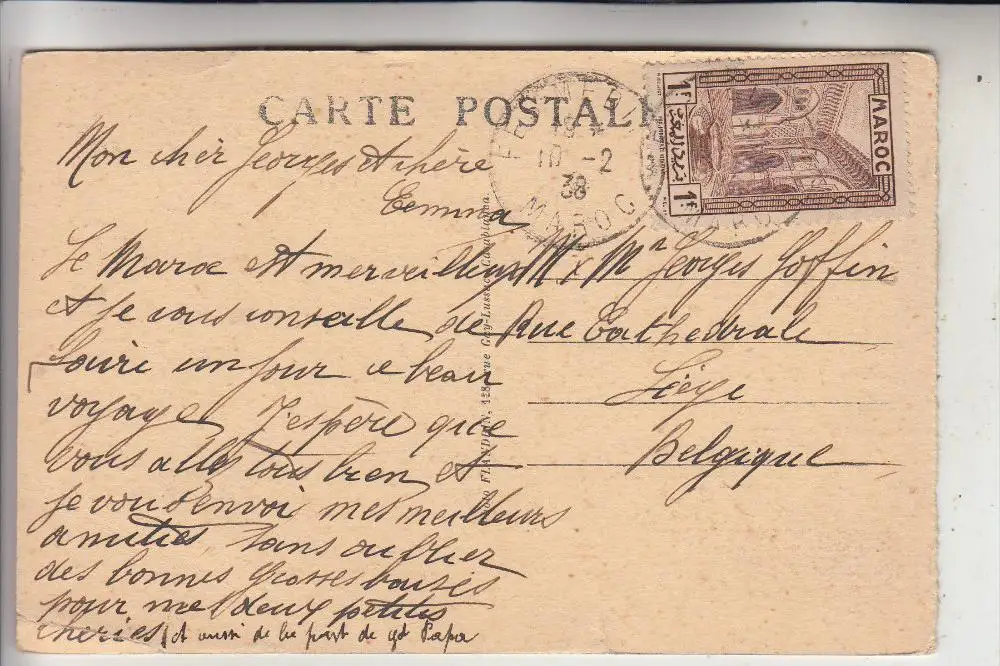 CARTE POSTALE
MAROC
1F
1F
10 -2
38
MAROC
Mon cher Georges et chère
Emma
Le Maroc est merveilleux
et je vous conseille de
faire un jour ce beau
voyage. J'espère que
vous allez tous bien et
je vous envoi mes meilleurs
amitiés, sans oublier
des bonnes grosses baises
pour mes deux petites
chéries, et aussi de la part de gd Papa
Mr & Me Georges Goffin
Rue Cathedrale
Liége
Belgique
FLANDRIN, 128, rue Gay-Lussac, Casablanca